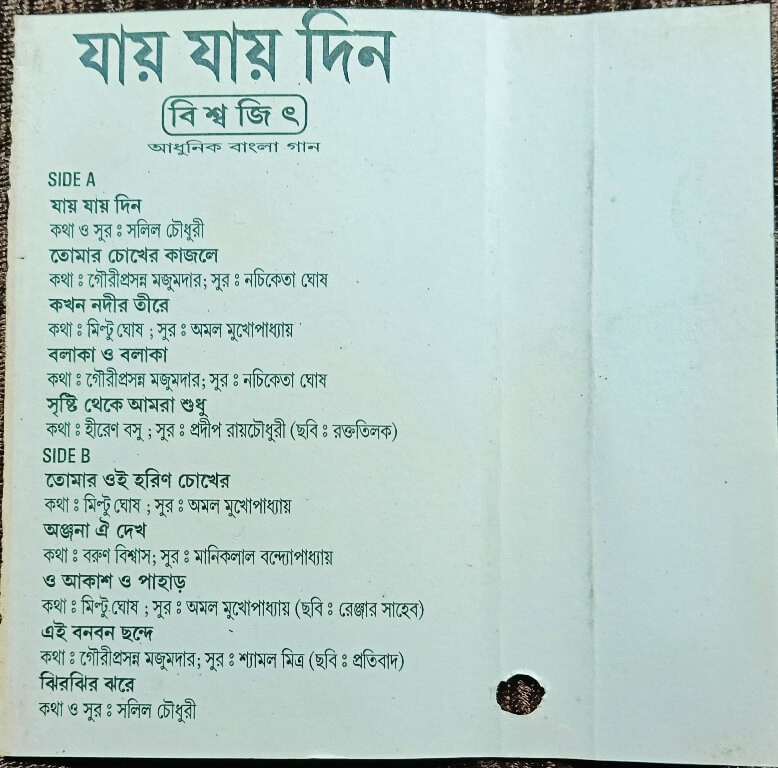 যায় যায় দিন
বিশ্বজিৎ
আধুনিক বাংলা গান
SIDE A
যায় যায় দিন
কথা ও সুর : সলিল চৌধুরী
তোমার চোখের কাজলে
কথা : গৌরীপ্রসন্ন মজুমদার; সুর : নচিকেতা ঘোষ
কখন নদীর তীরে
কথা : মিন্টু ঘোষ ; সুর : অমল মুখোপাধ্যায়
বলাকা ও বলাকা
কথা : গৌরীপ্রসন্ন মজুমদার; সুর : নচিকেতা ঘোষ
সৃষ্টি থেকে আমরা শুধু
কথা : হীরেণ বসু ; সুর : প্রদীপ রায়চৌধুরী (ছবি : রক্ততিলক)
SIDE B
তোমার ওই হরিণ চোখের
কথা : মিন্টু ঘোষ ; সুর : অমল মুখোপাধ্যায়
অঞ্জনা ঐ দেখ
কথা : বরুণ বিশ্বাস; সুর : মানিকলাল বন্দ্যোপাধ্যায়
ও আকাশ ও পাহাড়
কথা : মিন্টু ঘোষ ; সুর : অমল মুখোপাধ্যায় (ছবি : রেঞ্জার সাহেব)
এই বনবন ছন্দে
কথা : গৌরীপ্রসন্ন মজুমদার; সুর : শ্যামল মিত্র (ছবি : প্রতিবাদ)
ঝিরঝির ঝরে
কথা ও সুর : সলিল চৌধুরী